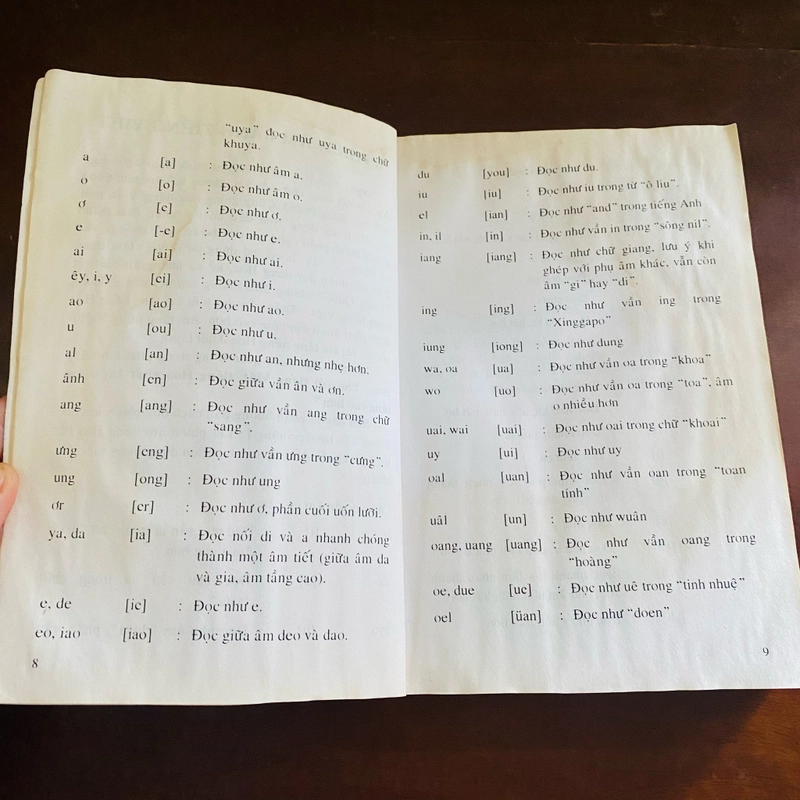 "uya" đọc như uya trong chữ
khuya.
a [a] : Đọc như âm a.
o [o] : Đọc như âm o.
ơ [e] : Đọc như ơ.
e [-e] : Đọc như e.
ai [ai] : Đọc như ai.
êy, i, y [ei] : Đọc như i.
ao [ao] : Đọc như ao.
u [ou] : Đọc như u.
al [an] : Đọc như an, nhưng nhẹ hơn.
ânh [en] : Đọc giữa vần ân và ơn.
ang [ang] : Đọc như vần ang trong chữ
"sang".
ưng [eng] : Đọc như vần ưng trong "cưng".
ung [ong] : Đọc như ung
ơr [er] : Đọc như ơ, phần cuối uốn lưỡi.
ya, da [ia] : Đọc nối di và a nhanh chóng
thành một âm tiết (giữa âm da
và gia, âm tầng cao).
e, de [ie] : Đọc như e.
eo, iao [iao] : Đọc giữa âm deo và dao.
8
du [you] : Đọc như du.
iu [iu] : Đọc như iu trong từ "ô liu".
el [ian] : Đọc như "and" trong tiếng Anh
in, il [in] : Đọc như vần in trong "sông nil".
iang [iang] : Đọc như chữ giang, lưu ý khi
ghép với phụ âm khác, vẫn còn
âm "gi" hay "di".
ing [ing] : Đọc như vần ing trong
"Xinggapo"
iung [iong] : Đọc như dung
wa, oa [ua] : Đọc như vần oa trong "khoa"
wo [uo] : Đọc như vần oa trong "toa", âm
o nhiều hơn
uai, wai [uai] : Đọc như oai trong chữ "khoai"
uy [ui] : Đọc như uy
oal [uan] : Đọc như vần oan trong "toan
tính"
uâl [un] : Đọc như wuân
oang, uang [uang] : Đọc như vần oang trong
"hoàng"
oe, due [ue] : Đọc như uê trong "tinh nhuệ"
oel [üan] : Đọc như "doen"
9